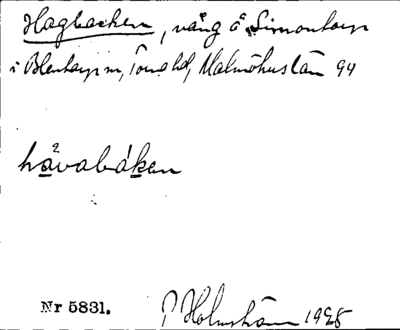 Hagbacken, vång å Simontorp
i Blentarps sn, Torna hd, Malmöhus län 94
hávabákan
Nr 5831.
P Holmström 1928